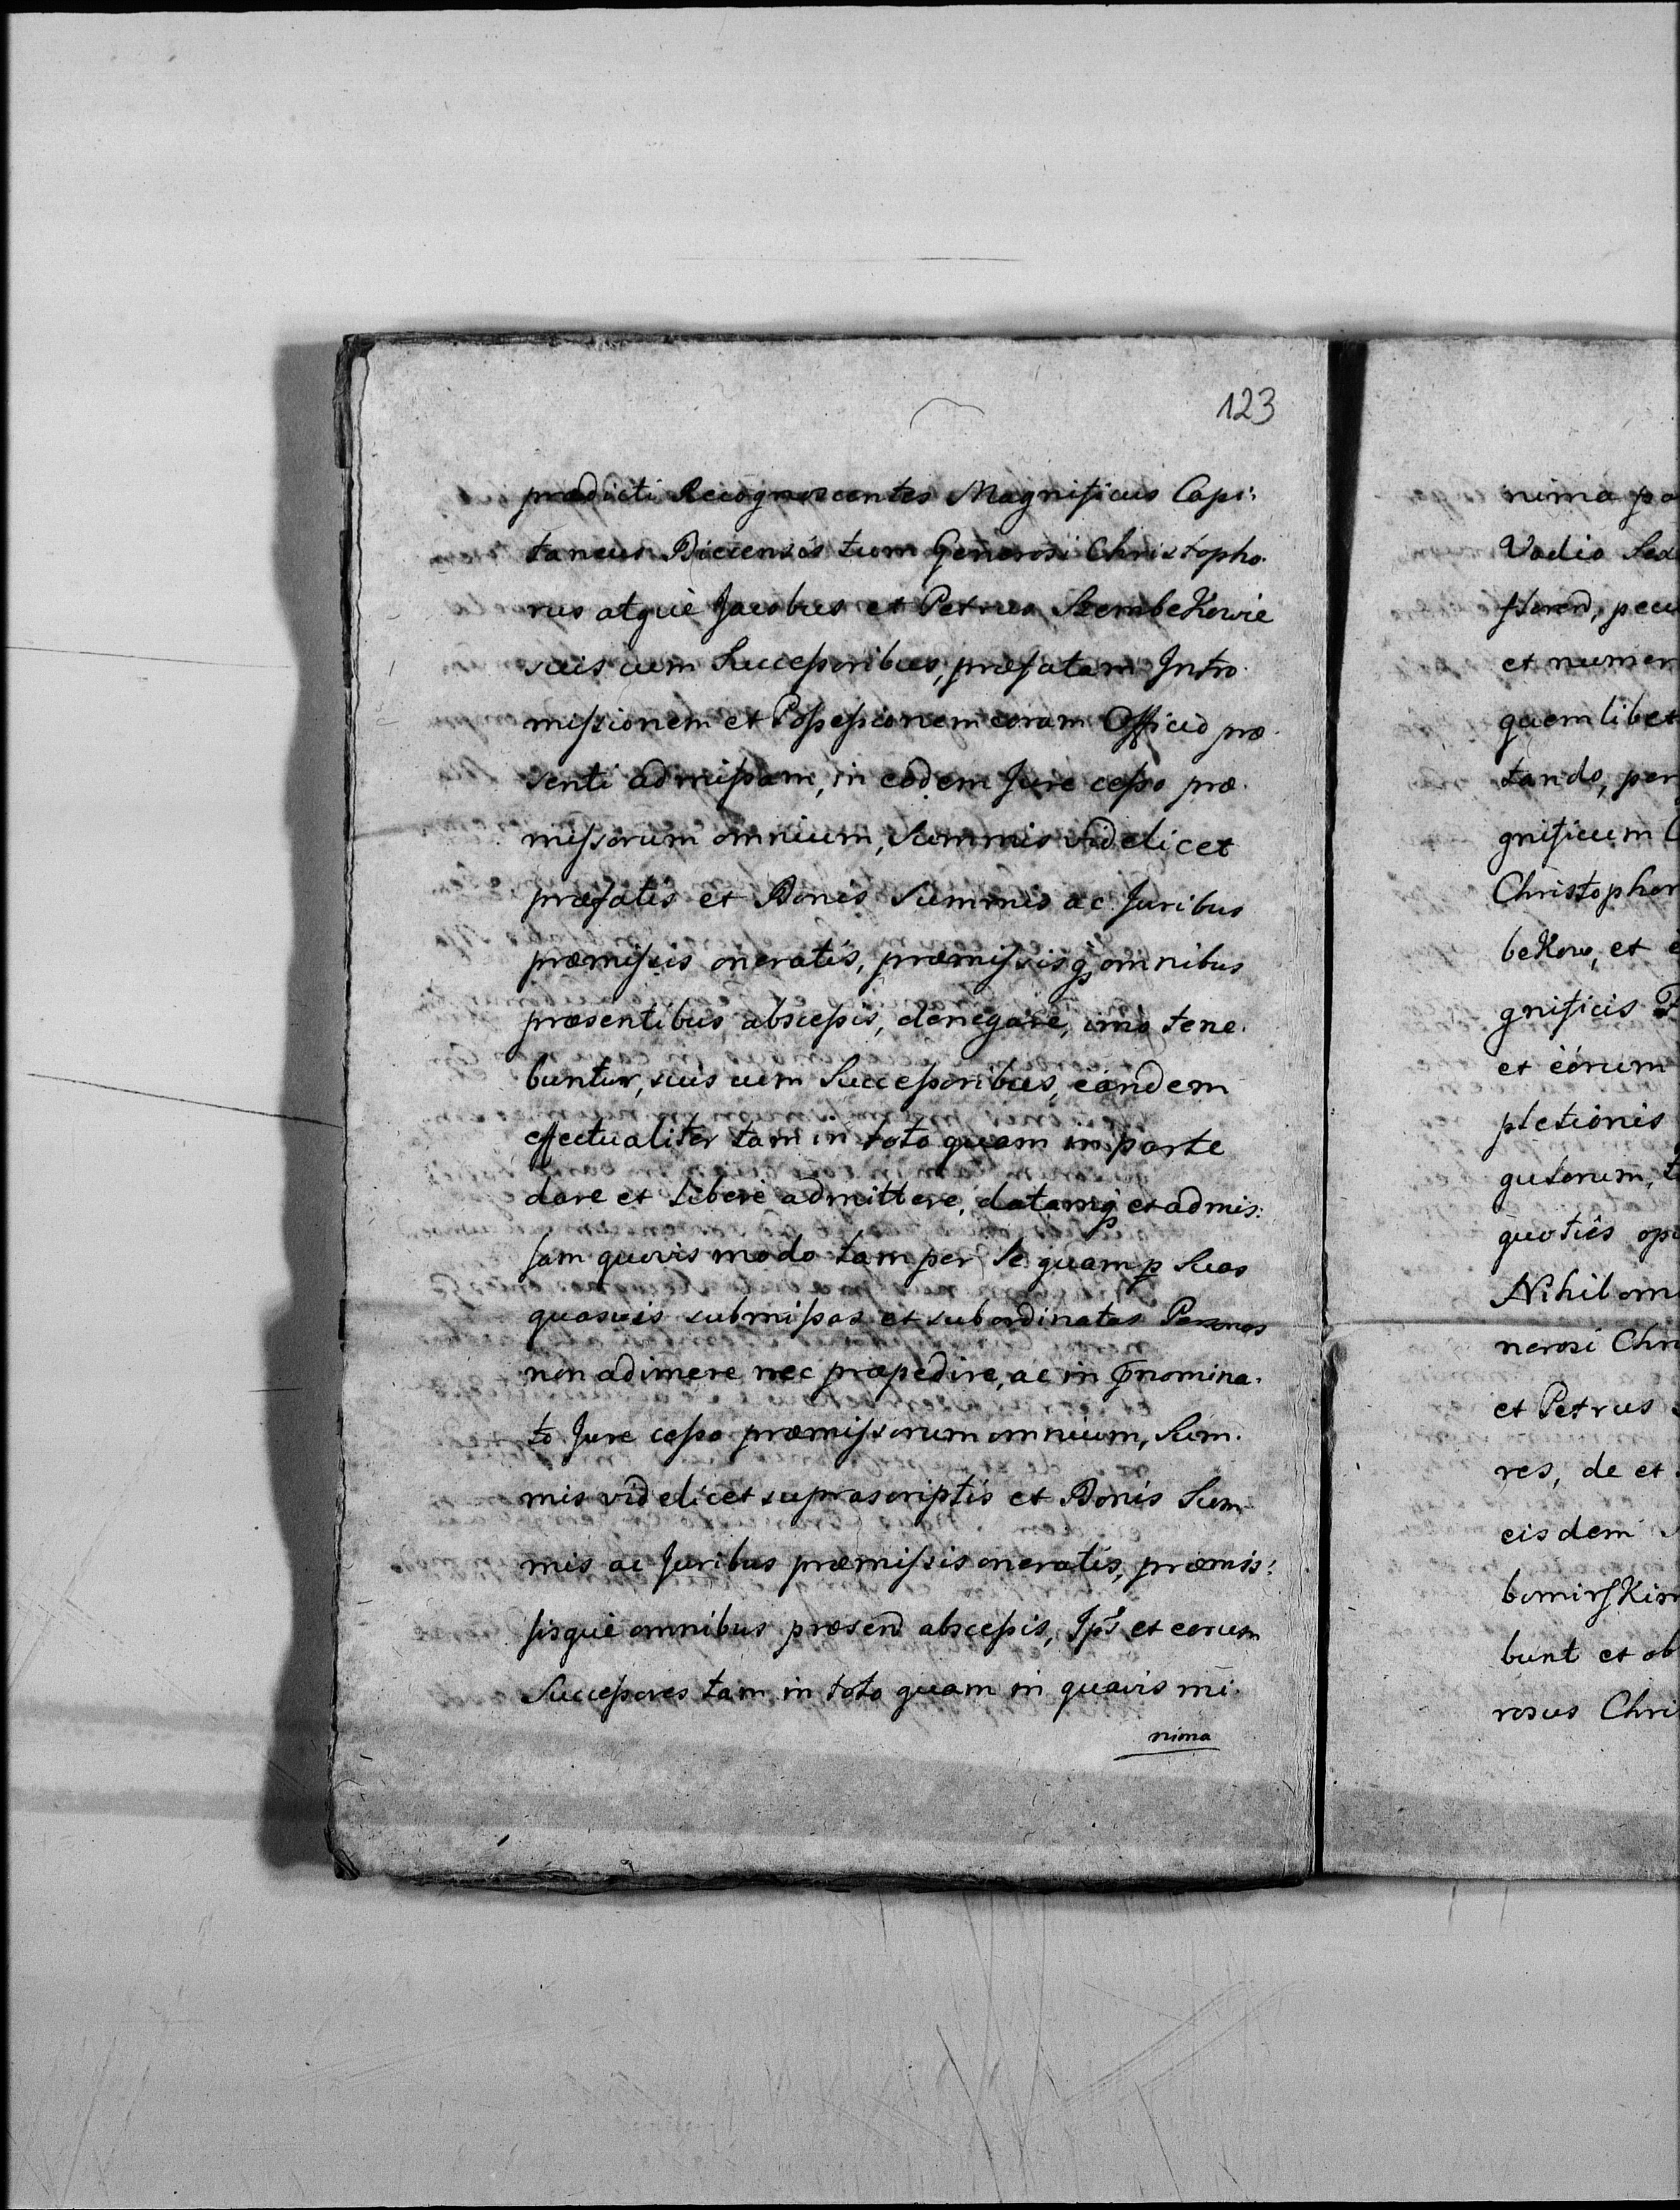 123
prædicti Recognoscentes Magnificus Capi:
taneus Biecensis tum Generosi Christopho-
rus atquè Jacobus et Petrus Szembekowie
suis cum Successoribus, præfatam Intro-
missionem et Possessionem coram Officio præ-
senti admissam, in eodem Jure cesso præ-
missorum omnium, Summis videlicet
præfatis et Bonis Summis ac Juribus
præmissis oneratis, præmissisq́ omnibus
præsentibus abscessis, denegare, imò tene-
buntur, suis cum Successoribus, eandem
effectualiter tam in toto quam in parte
dare et liberè admittere, datamq́ et admis:
sam quovis modo tam per se quam p Suas
quasvis submissas et subordinatas Personas
non adimere nec præpedire, ac in prænomina-
to Jure cesso præmissorum omnium, Sum-
mis videlicet suprascriptis et Bonis Sum-
mis ac Juribus præmissis oneratis, præmis:
sisquè omnibus præsend abscessis, Ips et eorum
Successores tam in toto quam in quavis mi-
nima
nima pa
Vadio Sex
floren, pecu
et numer
quemlibet
tando, per
gnificum C
Christophor
bekow, et e
gnificis F
et eorum
pletionis
gulorum, t
quotiès op
Nihilomi
nerosi Chri
et Petrus
res, de et
eisdem
bomirskim
bunt et ob
rosus Chri